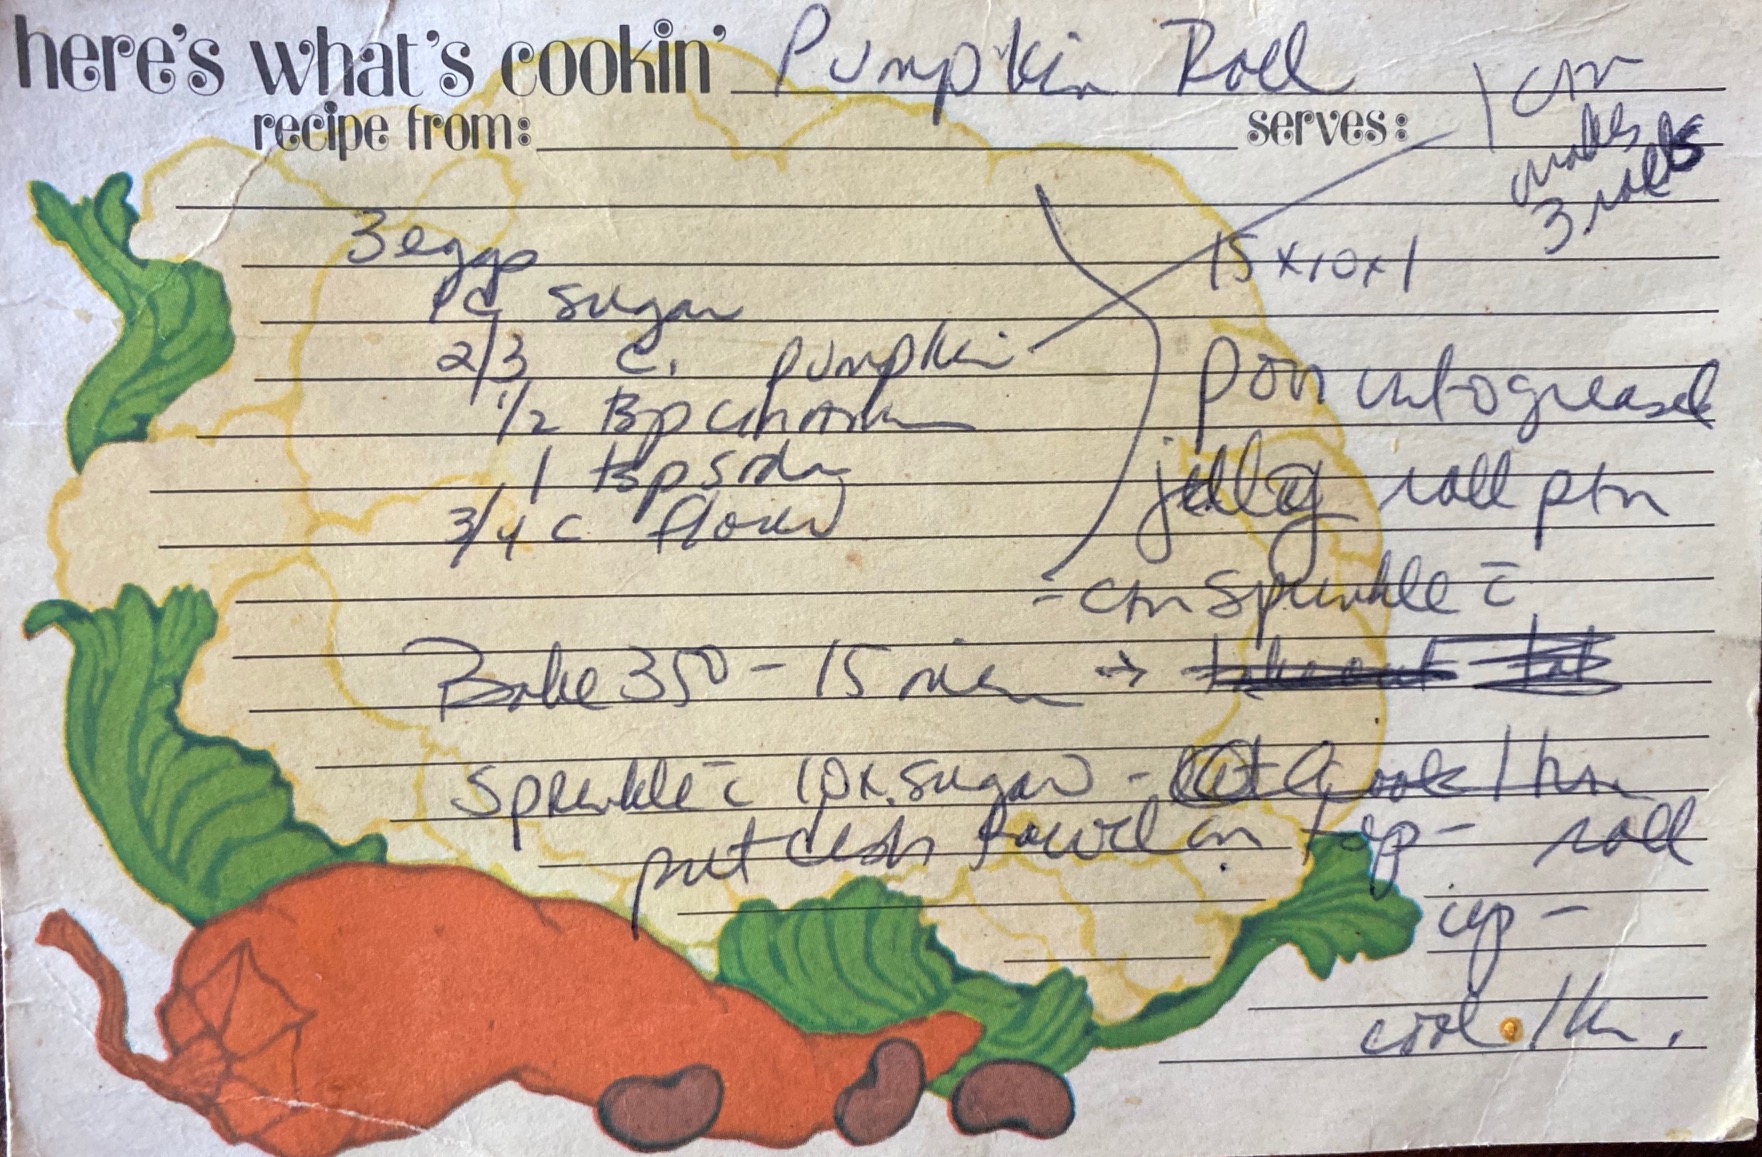 here's what's cookin' Pumpkin Roll
recipe from: serves:
1 can
makes
3 rolls
3 eggs
1 c sugar
2/3 c. pumpkin
1/2 tsp cinnamon
1 tsp soda
3/4 c flour
15 x 10 x 1
pour into greased
jelly roll pan
- can sprinkle c̄
Bake 350 - 15 min → take out
Sprinkle c̄ 10x sugar - let cool 1 hr
put dish towel on top - roll
up -
cool 1 hr.